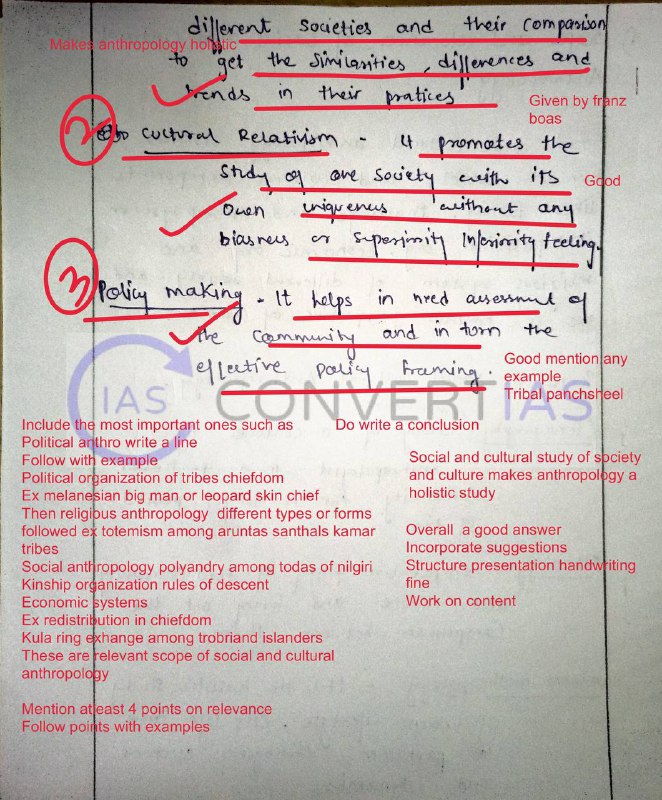 different societies and their comparison
Makes anthropology holistic
to get the similarities, differences and
trends in their pratices
Given by franz
boas
2
Cultural Relativism - It promotes the
study of one society with its
Good
own uniqueness without any
biasness or superiority inferiority feeling.
3
Policy making - It helps in need assessment of
the community and in turn the
effective policy framing.
Good mention any
example
Tribal panchsheel
IAS CONVERTIAS
Include the most important ones such as
Political anthro write a line
Follow with example
Political organization of tribes chiefdom
Ex melanesian big man or leopard skin chief
Then religious anthropology different types or forms
followed ex totemism among aruntas santhals kamar
tribes
Social anthropology polyandry among todas of nilgiri
Kinship organization rules of descent
Economic systems
Ex redistribution in chiefdom
Kula ring exhange among trobriand islanders
These are relevant scope of social and cultural
anthropology
Mention atleast 4 points on relevance
Follow points with examples
Do write a conclusion
Social and cultural study of society
and culture makes anthropology a
holistic study
Overall a good answer
Incorporate suggestions
Structure presentation handwriting
fine
Work on content